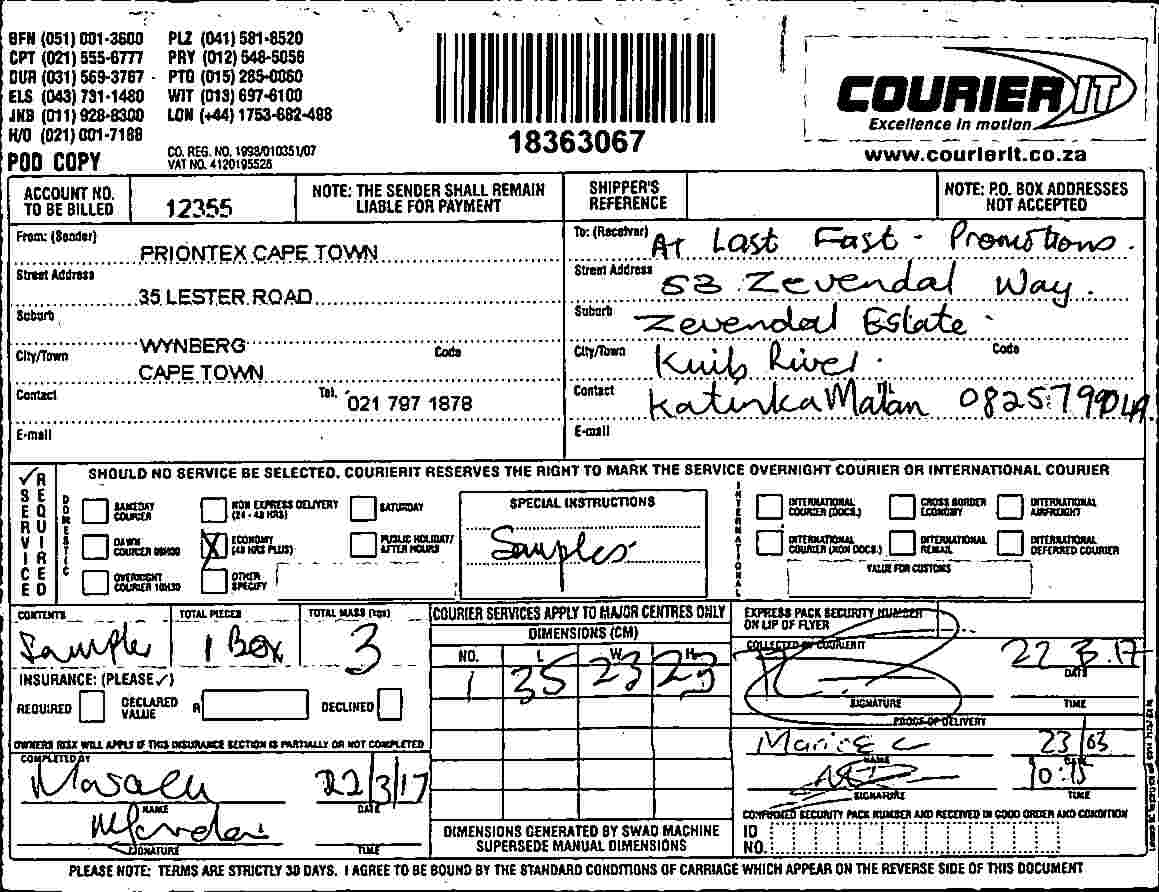 BFN (051) 001-3600 PLZ (041) 581-8520
CPT (021) 555-6777 PRY (012) 548-5056
DUR (031) 569-3767 PTG (015) 285-0060
ELS (043) 731-1480 WIT (013) 697-6100
JNB (011) 928-8300 LON (+44) 1753-682-498
H/O (021) 001-7188
POD COPY
CO. REG. NO. 1998/010351/07
VAT NO. 4120195525
18363067
COURIER IT
Excellence in motion
www.courierit.co.za
ACCOUNT NO. TO BE BILLED 12355
NOTE: THE SENDER SHALL REMAIN LIABLE FOR PAYMENT
SHIPPER'S REFERENCE
NOTE: P.O. BOX ADDRESSES NOT ACCEPTED
From: (Sender) PRIONTEX CAPE TOWN
Street Address 35 LESTER ROAD
Suburb WYNBERG
City/Town CAPE TOWN Code
Contact Tel. 021 797 1878
E-mail
To: (Receiver) At Last Fast - Promotions.
Street Address 53 Zevendal Way.
Suburb Zevendal Estate
City/Town Kuils River. Code
Contact Katinka Malan
E-mail
✓ SERVICE REQUIRED
SHOULD NO SERVICE BE SELECTED, COURIERIT RESERVES THE RIGHT TO MARK THE SERVICE OVERNIGHT COURIER OR INTERNATIONAL COURIER
DOMESTIC
SAMEDAY COURIER
DAWN COURIER
OVERNIGHT COURIER 10H30
NON EXPRESS DELIVERY (24 - 48 HRS)
X ECONOMY (48 HRS PLUS)
OTHER SPECIFY
SATURDAY
PUBLIC HOLIDAY/ AFTER HOURS
SPECIAL INSTRUCTIONS
Samples
INTERNATIONAL
INTERNATIONAL COURIER (DOCS.)
INTERNATIONAL COURIER (NON DOCS.)
CROSS BORDER ECONOMY
INTERNATIONAL REMAIL
INTERNATIONAL AIRFREIGHT
INTERNATIONAL DEFERRED COURIER
VALUE FOR CUSTOMS
CONTENTS Sample
TOTAL PIECES 1 Box
TOTAL MASS (kgs) 3
INSURANCE: (PLEASE ✓)
REQUIRED DECLARED VALUE R DECLINED
OWNERS RISK WILL APPLY IF THIS INSURANCE SECTION IS PARTIALLY OR NOT COMPLETED
COMPLETED BY
NAME 22/3/17 DATE
SIGNATURE TIME
COURIER SERVICES APPLY TO MAJOR CENTRES ONLY
DIMENSIONS (CM)
NO. L W H
1 35 23 23
DIMENSIONS GENERATED BY SWAD MACHINE SUPERSEDE MANUAL DIMENSIONS
EXPRESS PACK SECURITY NUMBER ON LIP OF FLYER
COLLECTED BY COURIERIT
22 3.17 DATE
SIGNATURE TIME
PROOF OF DELIVERY
NAME 23/03 DATE
SIGNATURE 10:15 TIME
CONFIRMED SECURITY PACK NUMBER AND RECEIVED IN GOOD ORDER AND CONDITION
ID NO.
PLEASE NOTE: TERMS ARE STRICTLY 30 DAYS. I AGREE TO BE BOUND BY THE STANDARD CONDITIONS OF CARRIAGE WHICH APPEAR ON THE REVERSE SIDE OF THIS DOCUMENT